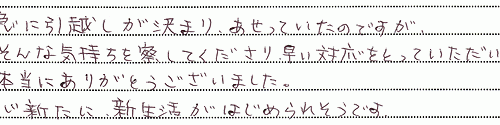 急に引越しが決まり、あせっていたのですが、
そんな気持ちを察してくださり、早い対応をとっていただい
本当にありがとうございました。
心新たに、新生活がはじめられそうです。